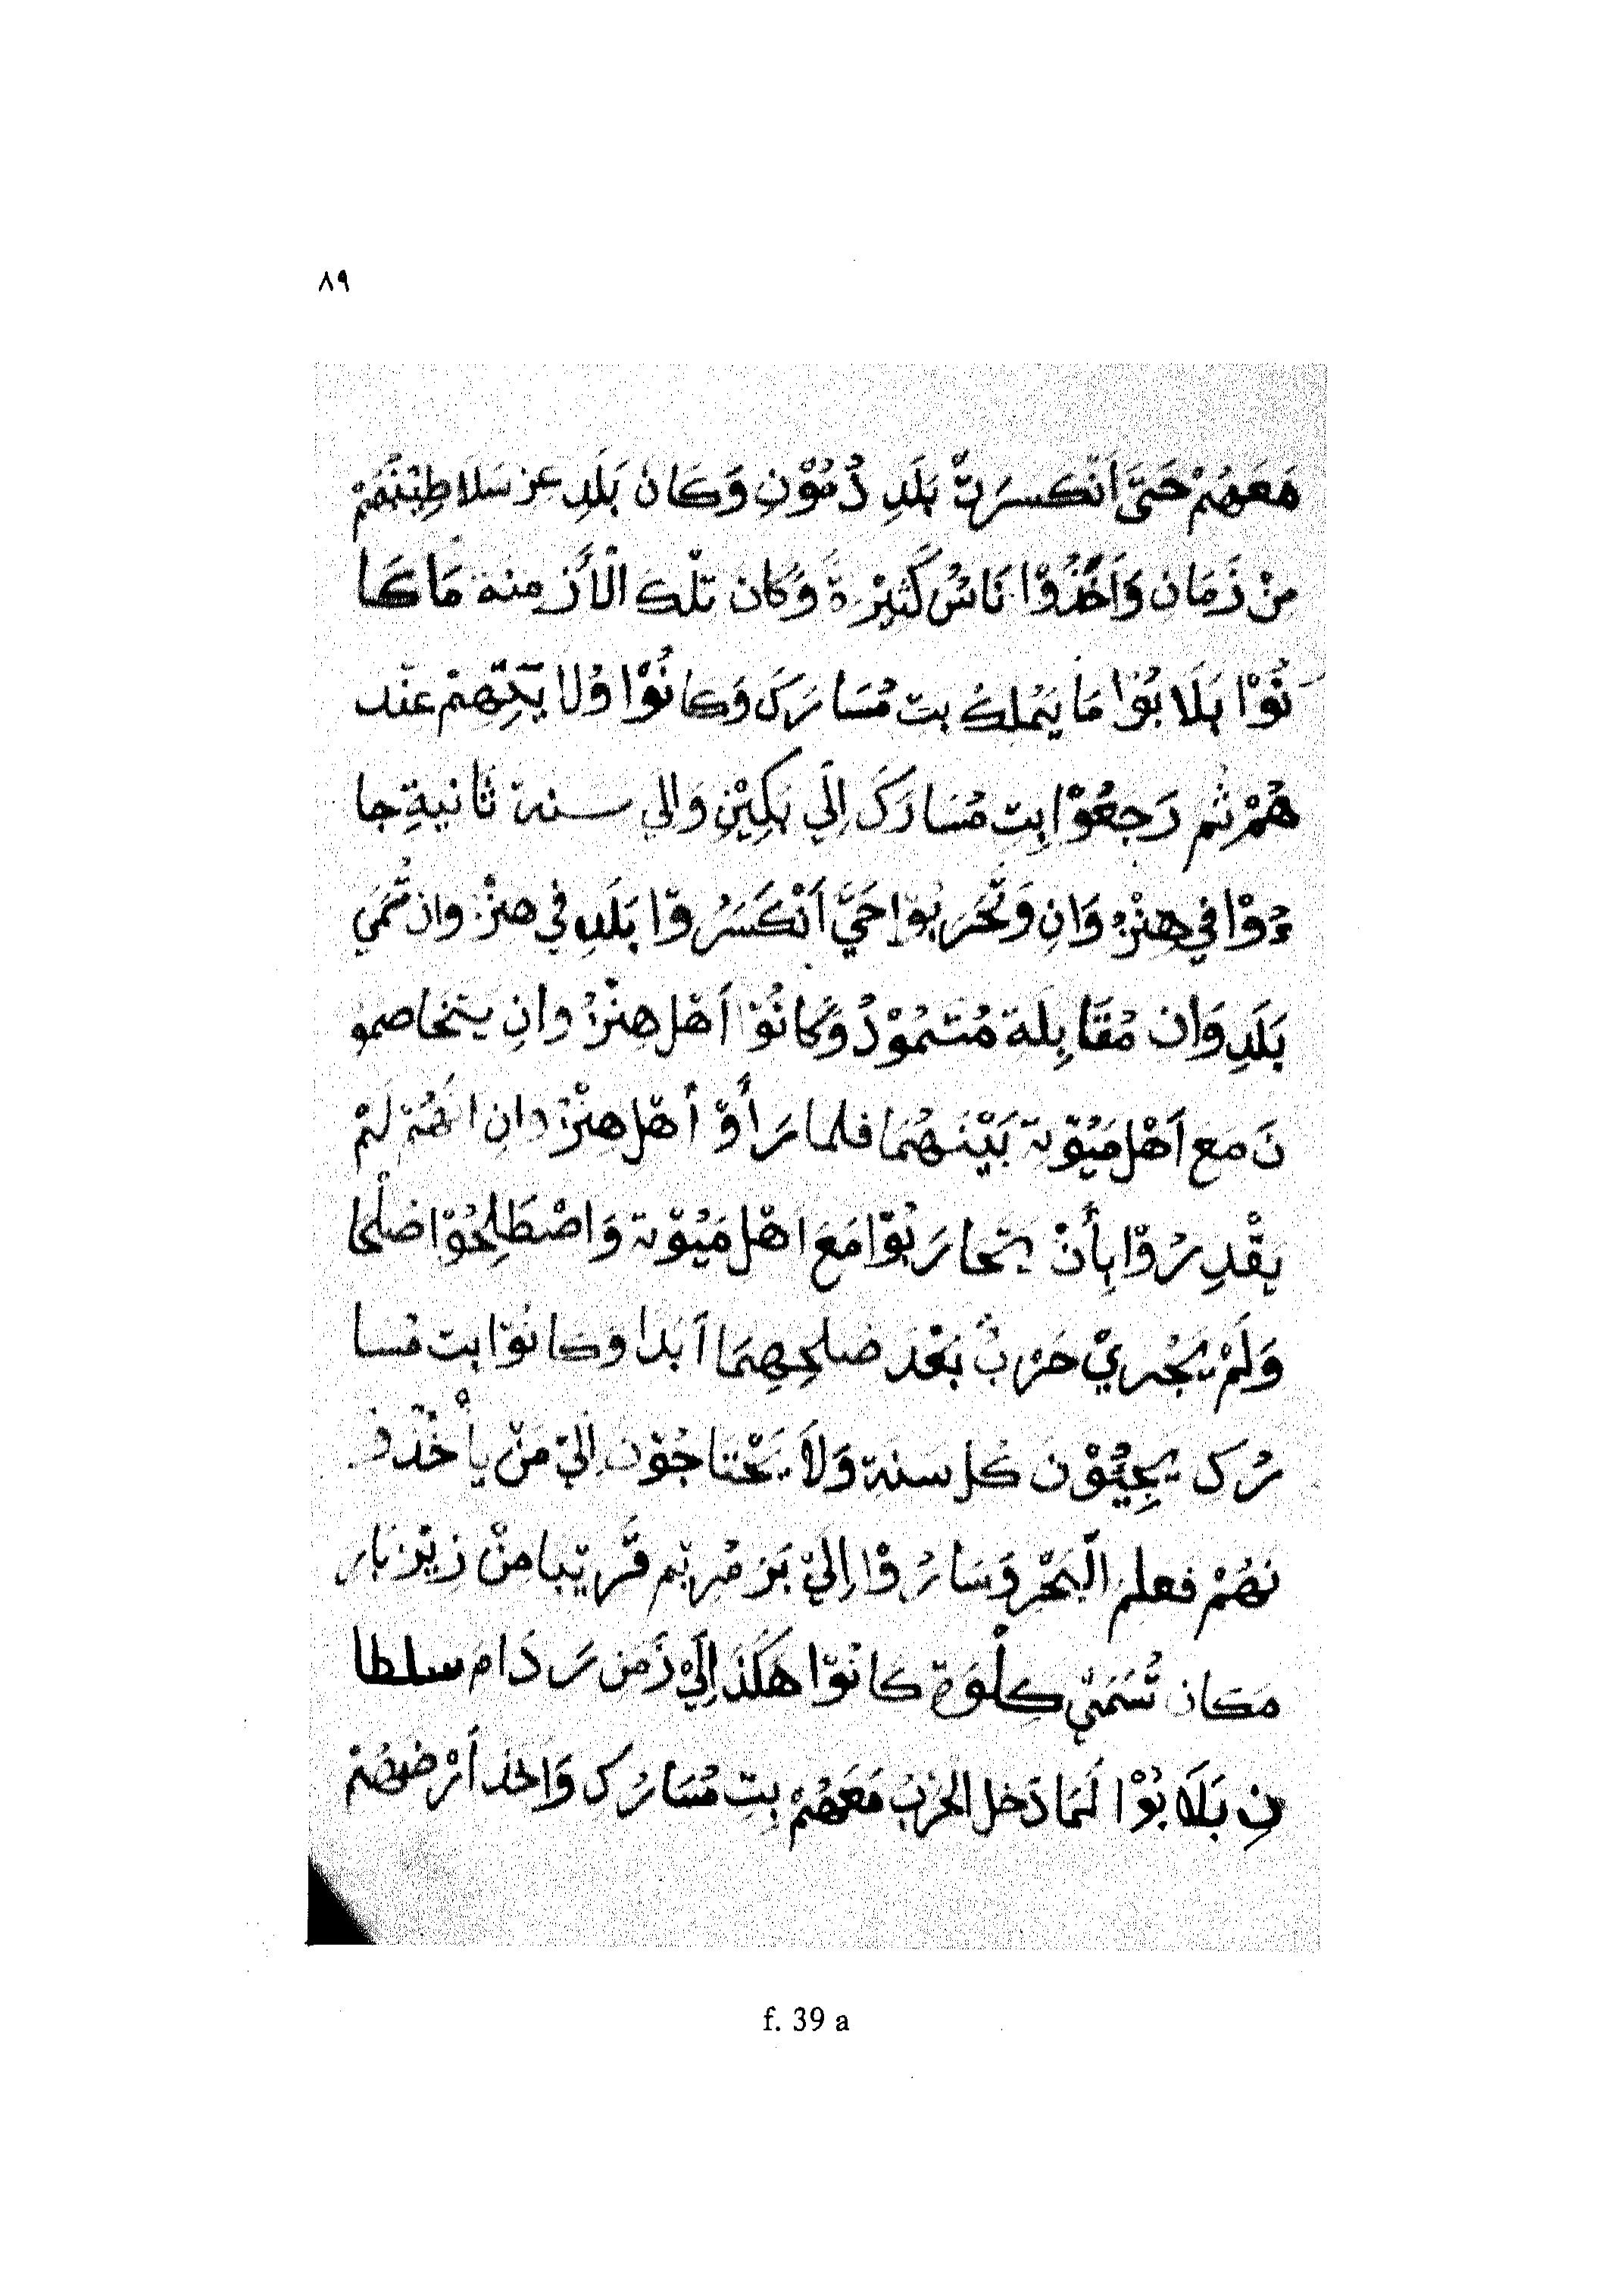 ٨٩
مَعَهُمْ حَتَّى اَنْكَسرَتْ بَلَدِ دُمُوْنِ وَكَانَ بَلَدِ عز سَلَاطِيْنُهُمْ
مِنْ زَمَانِ وَاَخَذُوْا نَاسُ كَثِيْرَةً وَكَانَ تلْكَ الْأَزْمنة مَاكَا
نُوْا بَلَا بُوْا مَا يَمْلكُ بت مُسَارَكَ وَكَانُوْا وُلَا يَتِهِمْ عنْد
هُمْ ثم رَجعُوْا بِت مُسَارَكَ اِلَي بَكِيْنِ وَالي سنة ثَانيةِ جا
ءُوْا فِي هِنْزُ وَانِ وَتَحَرَبُوْا حَتَّي اَنْكَسَرُوْا بَلَدِ فِي هنْزُ وَان تُسَمَي
بَلَدِ وَانِ مُقَابِلَة مُتسَمُوْدُ وَكانُوْا اَهْل هِنْزُ وانِ يتخاصمو
نَ مَع اَهْل مَيُوْتة بَيْنَهُمَا فلما رَأَوْ أهْل هِنْزُ وانِ اَنَّهُمْ لَمْ
يقْدِرُوْا بِأَنْ يتحارَبُوْا مَعَ اهْل مَيُوْتة وَاصْطَلِحُوْا صُلْحًا
وَلَمْ يَجْري حَرْبٌ بَعْدَ صُلحِهِمَا اَبَدا وَكَانُوْا بت مُسا
رُكَ يَجِيُوْنَ كُل سَنة وَلَا يَحْتاجُوْنَ اِلَيْ مَنْ يأْخُذُو
نَهُمْ فعلم الْبَحْر وَسَارُوْا اِلَيْ بَر مُرِيْم قَرِيْبا مِنْ زِيْنْزِبَار
مَكان تُسَمَيْ كِلْوَة كانُوْا هَكَذَ اِلَيْ زَمَنِ رَدَامَ سلطا
نِ بَلَا بُوْا لَمَا دَخل الحَرْبُ مَعَهُمْ بِت مُسَارُكَ وَاَخذ أرْضهُمْ
f. 39 a